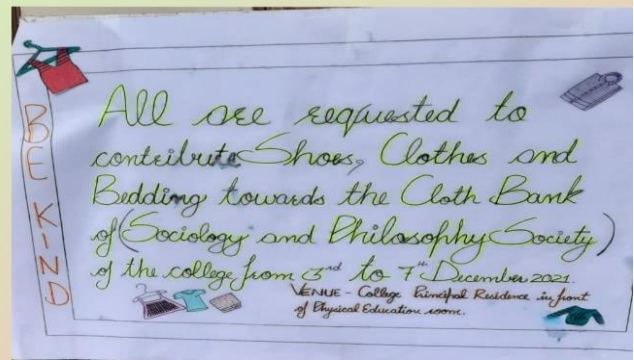 BE KIND
All are requested to
contribute Shoes, Clothes and
Bedding towards the Cloth Bank
of (Sociology and Philosophy Society)
of the college from 3rd to 7th December 2021
VENUE - College Principal Residence in front
of Physical Education room.